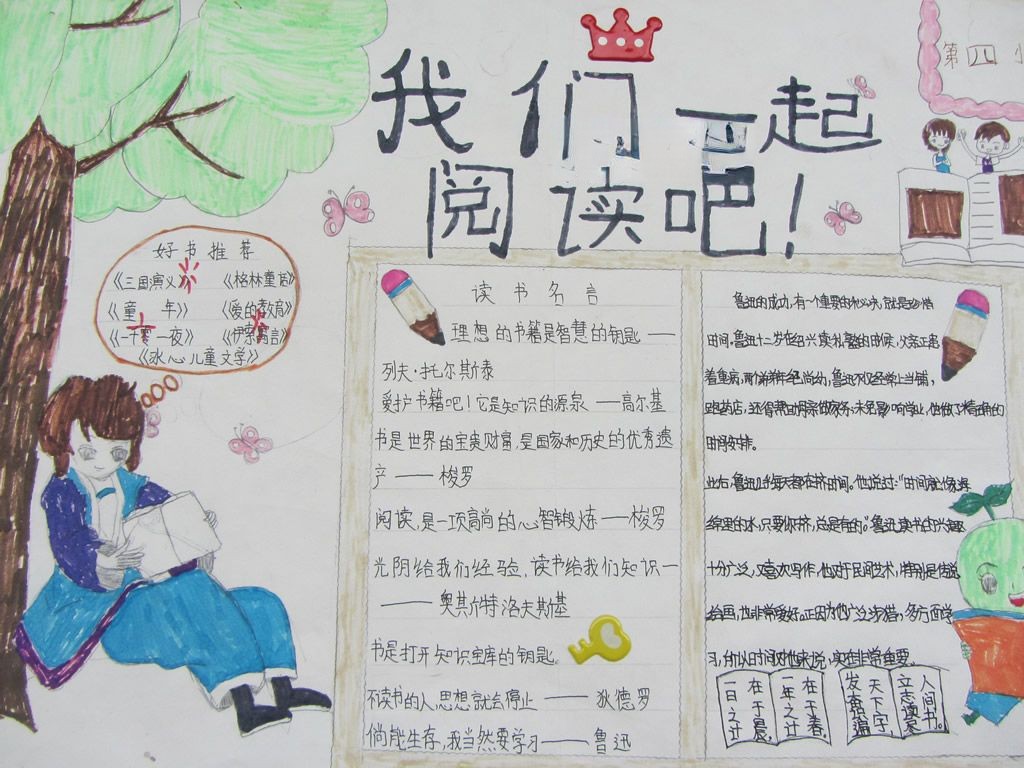 我们一起
阅读吧!
第四小
好书推荐
《三国演义》 《格林童话》
《童年》 《爱的教育》
《一千零一夜》 《伊索寓言》
《冰心儿童文学》
读书名言
理想的书籍是智慧的钥匙 —
列夫·托尔斯泰
爱护书籍吧!它是知识的源泉 —高尔基
书是世界的宝贵财富,是国家和历史的优秀遗
产 —— 梭罗
阅读,是一项高尚的心智锻炼 —梭罗
光阴给我们经验,读书给我们知识—
——奥斯特洛夫斯基
书是打开知识宝库的钥匙。
不读书的人,思想就会停止 —— 狄德罗
倘能生存,我当然要学习——鲁迅
鲁迅的成功,有一个重要的秘诀,就是珍惜
时间。鲁迅十二岁在绍兴读私塾的时候,父亲正患
着重病,两个弟弟年纪尚幼,鲁迅不仅经常上当铺,
跑药店,还得帮助母亲做家务,未免影响学业,他做了精确的
时间安排。
此后,鲁迅几乎每天都在挤时间。他说过:“时间,就像海绵
绵里的水,只要你挤,总是有的。”鲁迅读书的兴趣
十分广泛,又喜欢写作,他对于民间艺术,特别是传说
绘画,也非常爱好。正因为他广泛涉猎,多方面学
习,所以时间对他来说,实在非常重要。
一日之计
在于晨。
一年之计
在于春。
发奋识遍
天下字,
立志读尽
人间书。